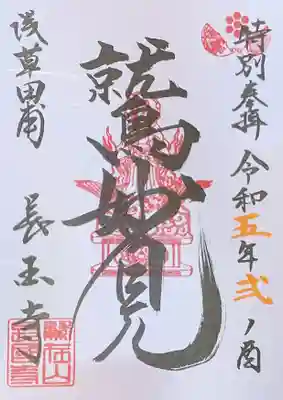 特別奉拝 令和五年 弐ノ酉
鷲妙見
浅草田甫
長玉寺
鷲在山
長国寺